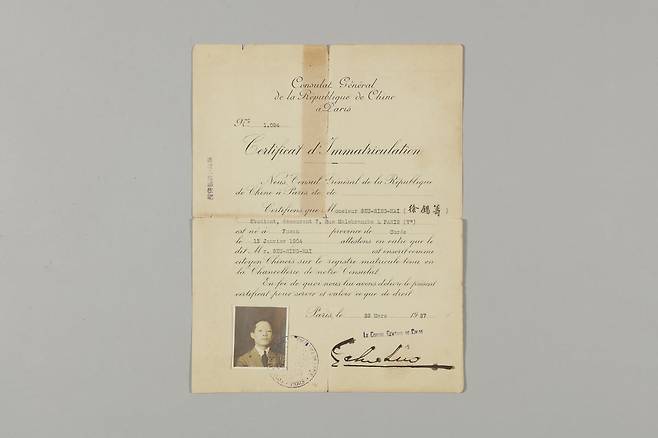 Consulat Général
de la République de Chine
à Paris
No. 1.084
Certificat d'Immatriculation
Nous Consul Général de la République
de Chine à Paris
Certifions que Monsieur SEU-RING-HAI (徐嶺海)
Etudiant, demeurant 7, Rue Malebranche à PARIS (V°)
est né à Fusan province de Corée
le 13 Janvier 1904 attestons en outre que le
dit Mr. SEU-RING-HAI est inscrit comme
citoyen Chinois sur le registre matricule tenu en
la Chancellerie de notre Consulat.
En foi de quoi nous lui avons délivré le présent
certificat pour servir et valoir ce que de droit.
Paris, le 22 Mars 1927
LE CONSUL GÉNÉRAL DE CHINE
PARIS